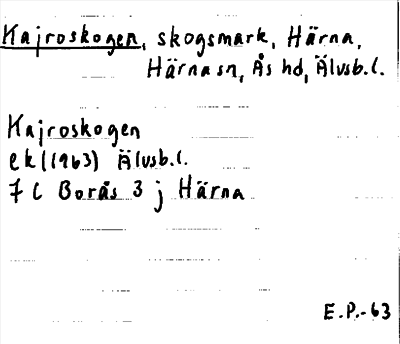 Kajroskogen, skogsmark, Härna,
Härna sn, Ås hd, Älvsb.l.
Kajroskogen
ek (1963) Älvsb.l.
7 C Borås 3 j Härna
E.P.-63